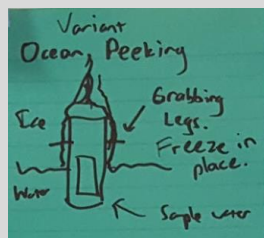 Variant
Ocean, Peeking
Ice
Grabbing
Legs.
Freeze in
place.
Water
Sample water